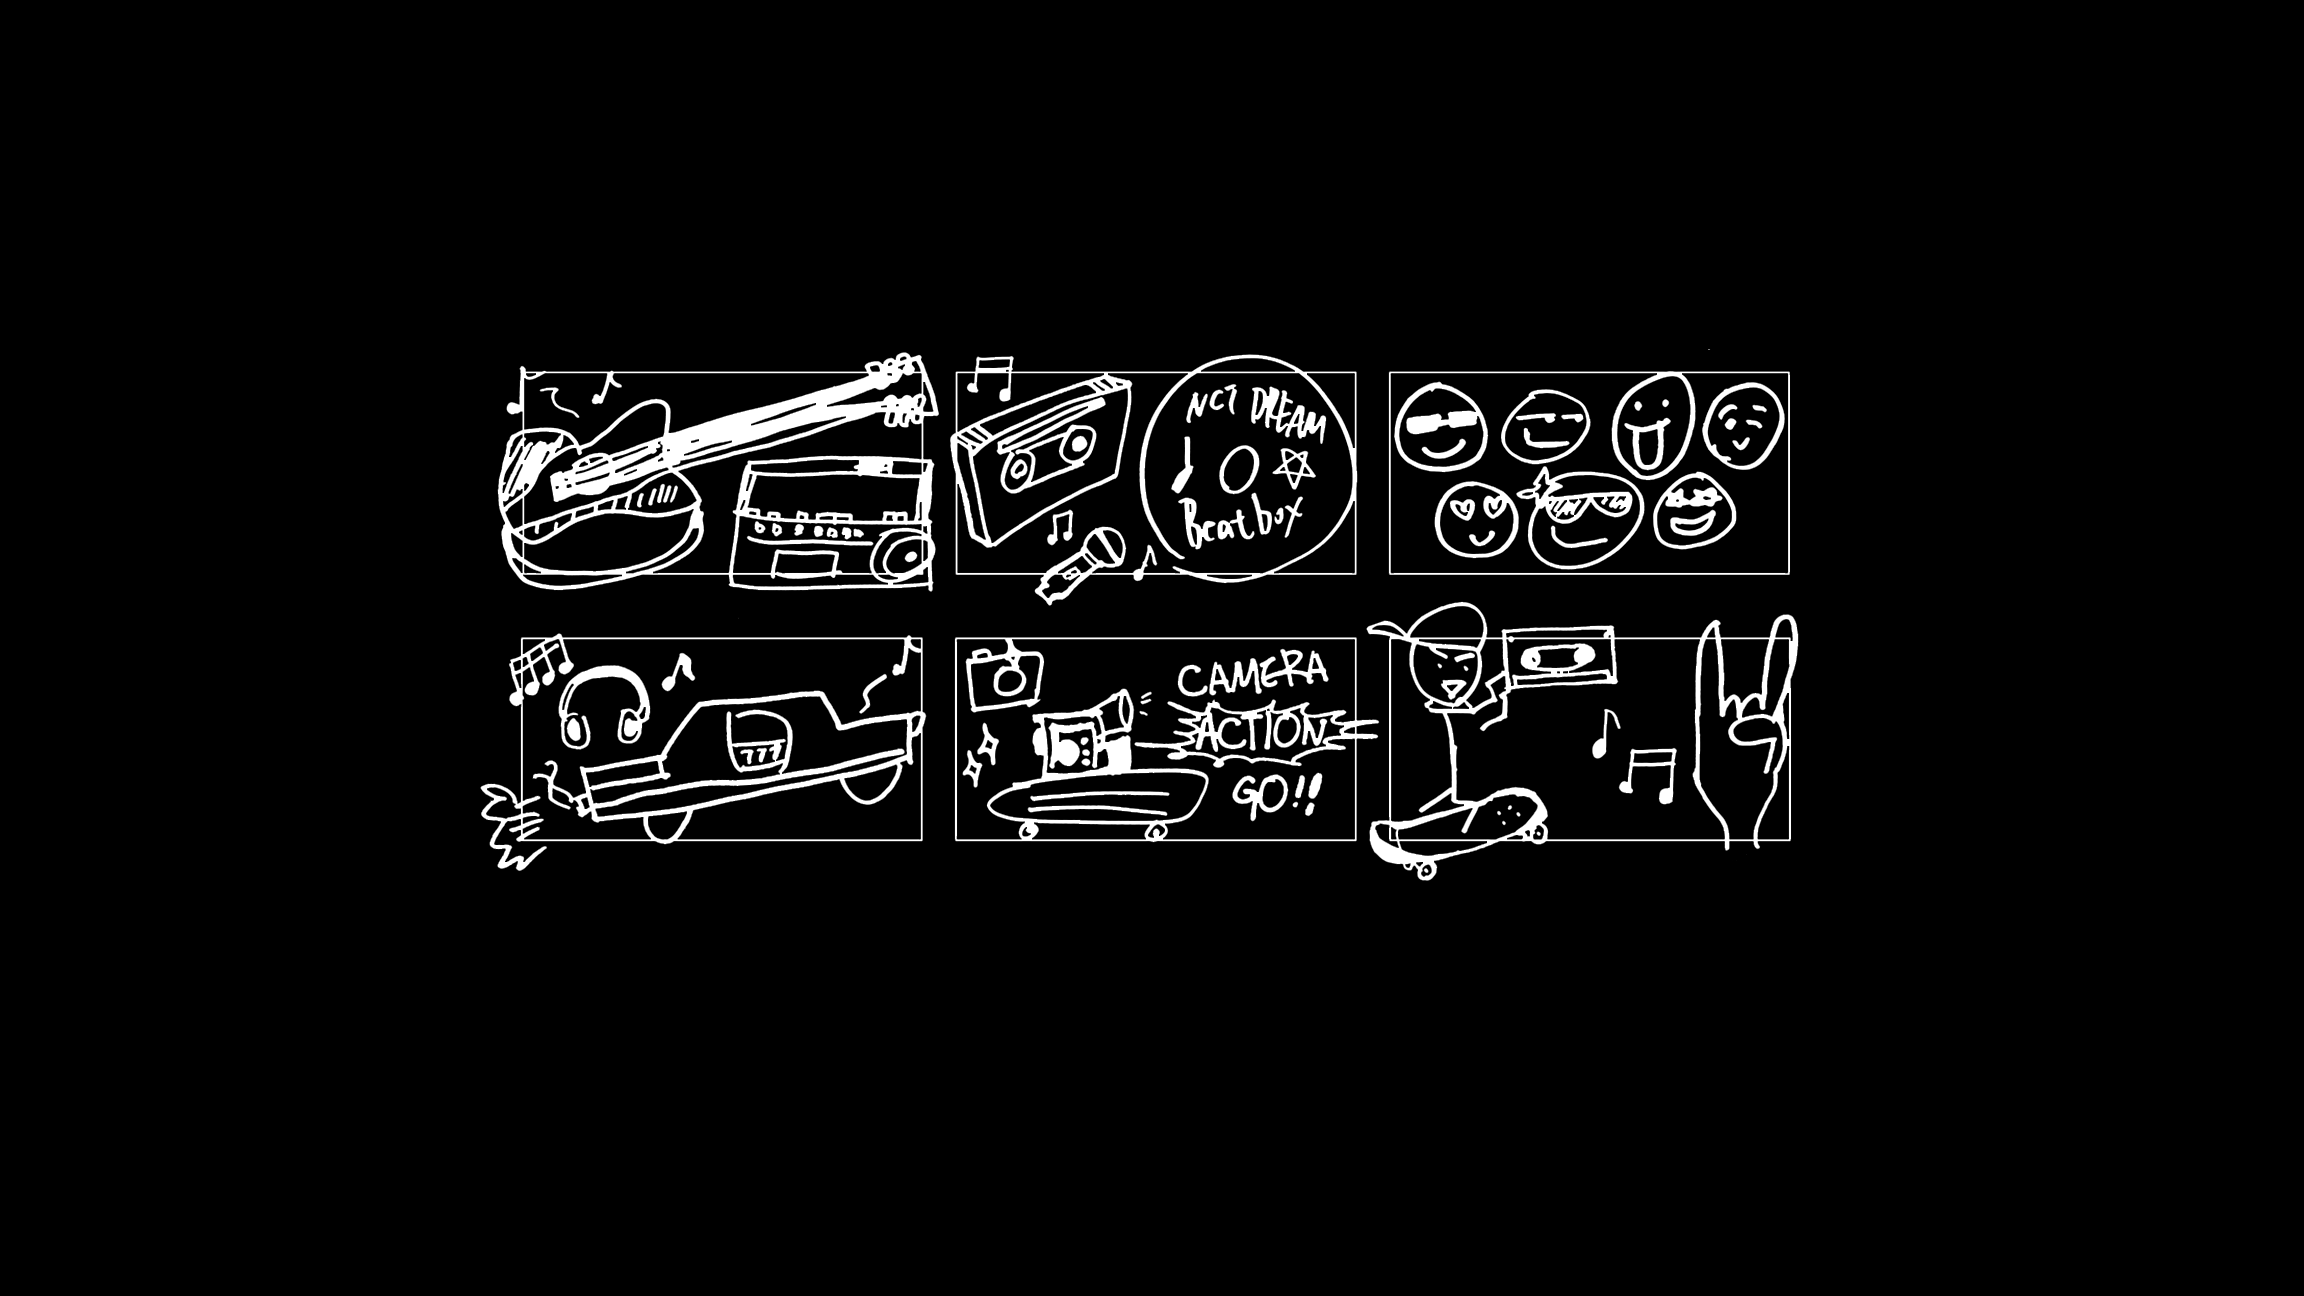 NCT DREAM
Beatbox
777
CAMERA
ACTION
GO!!